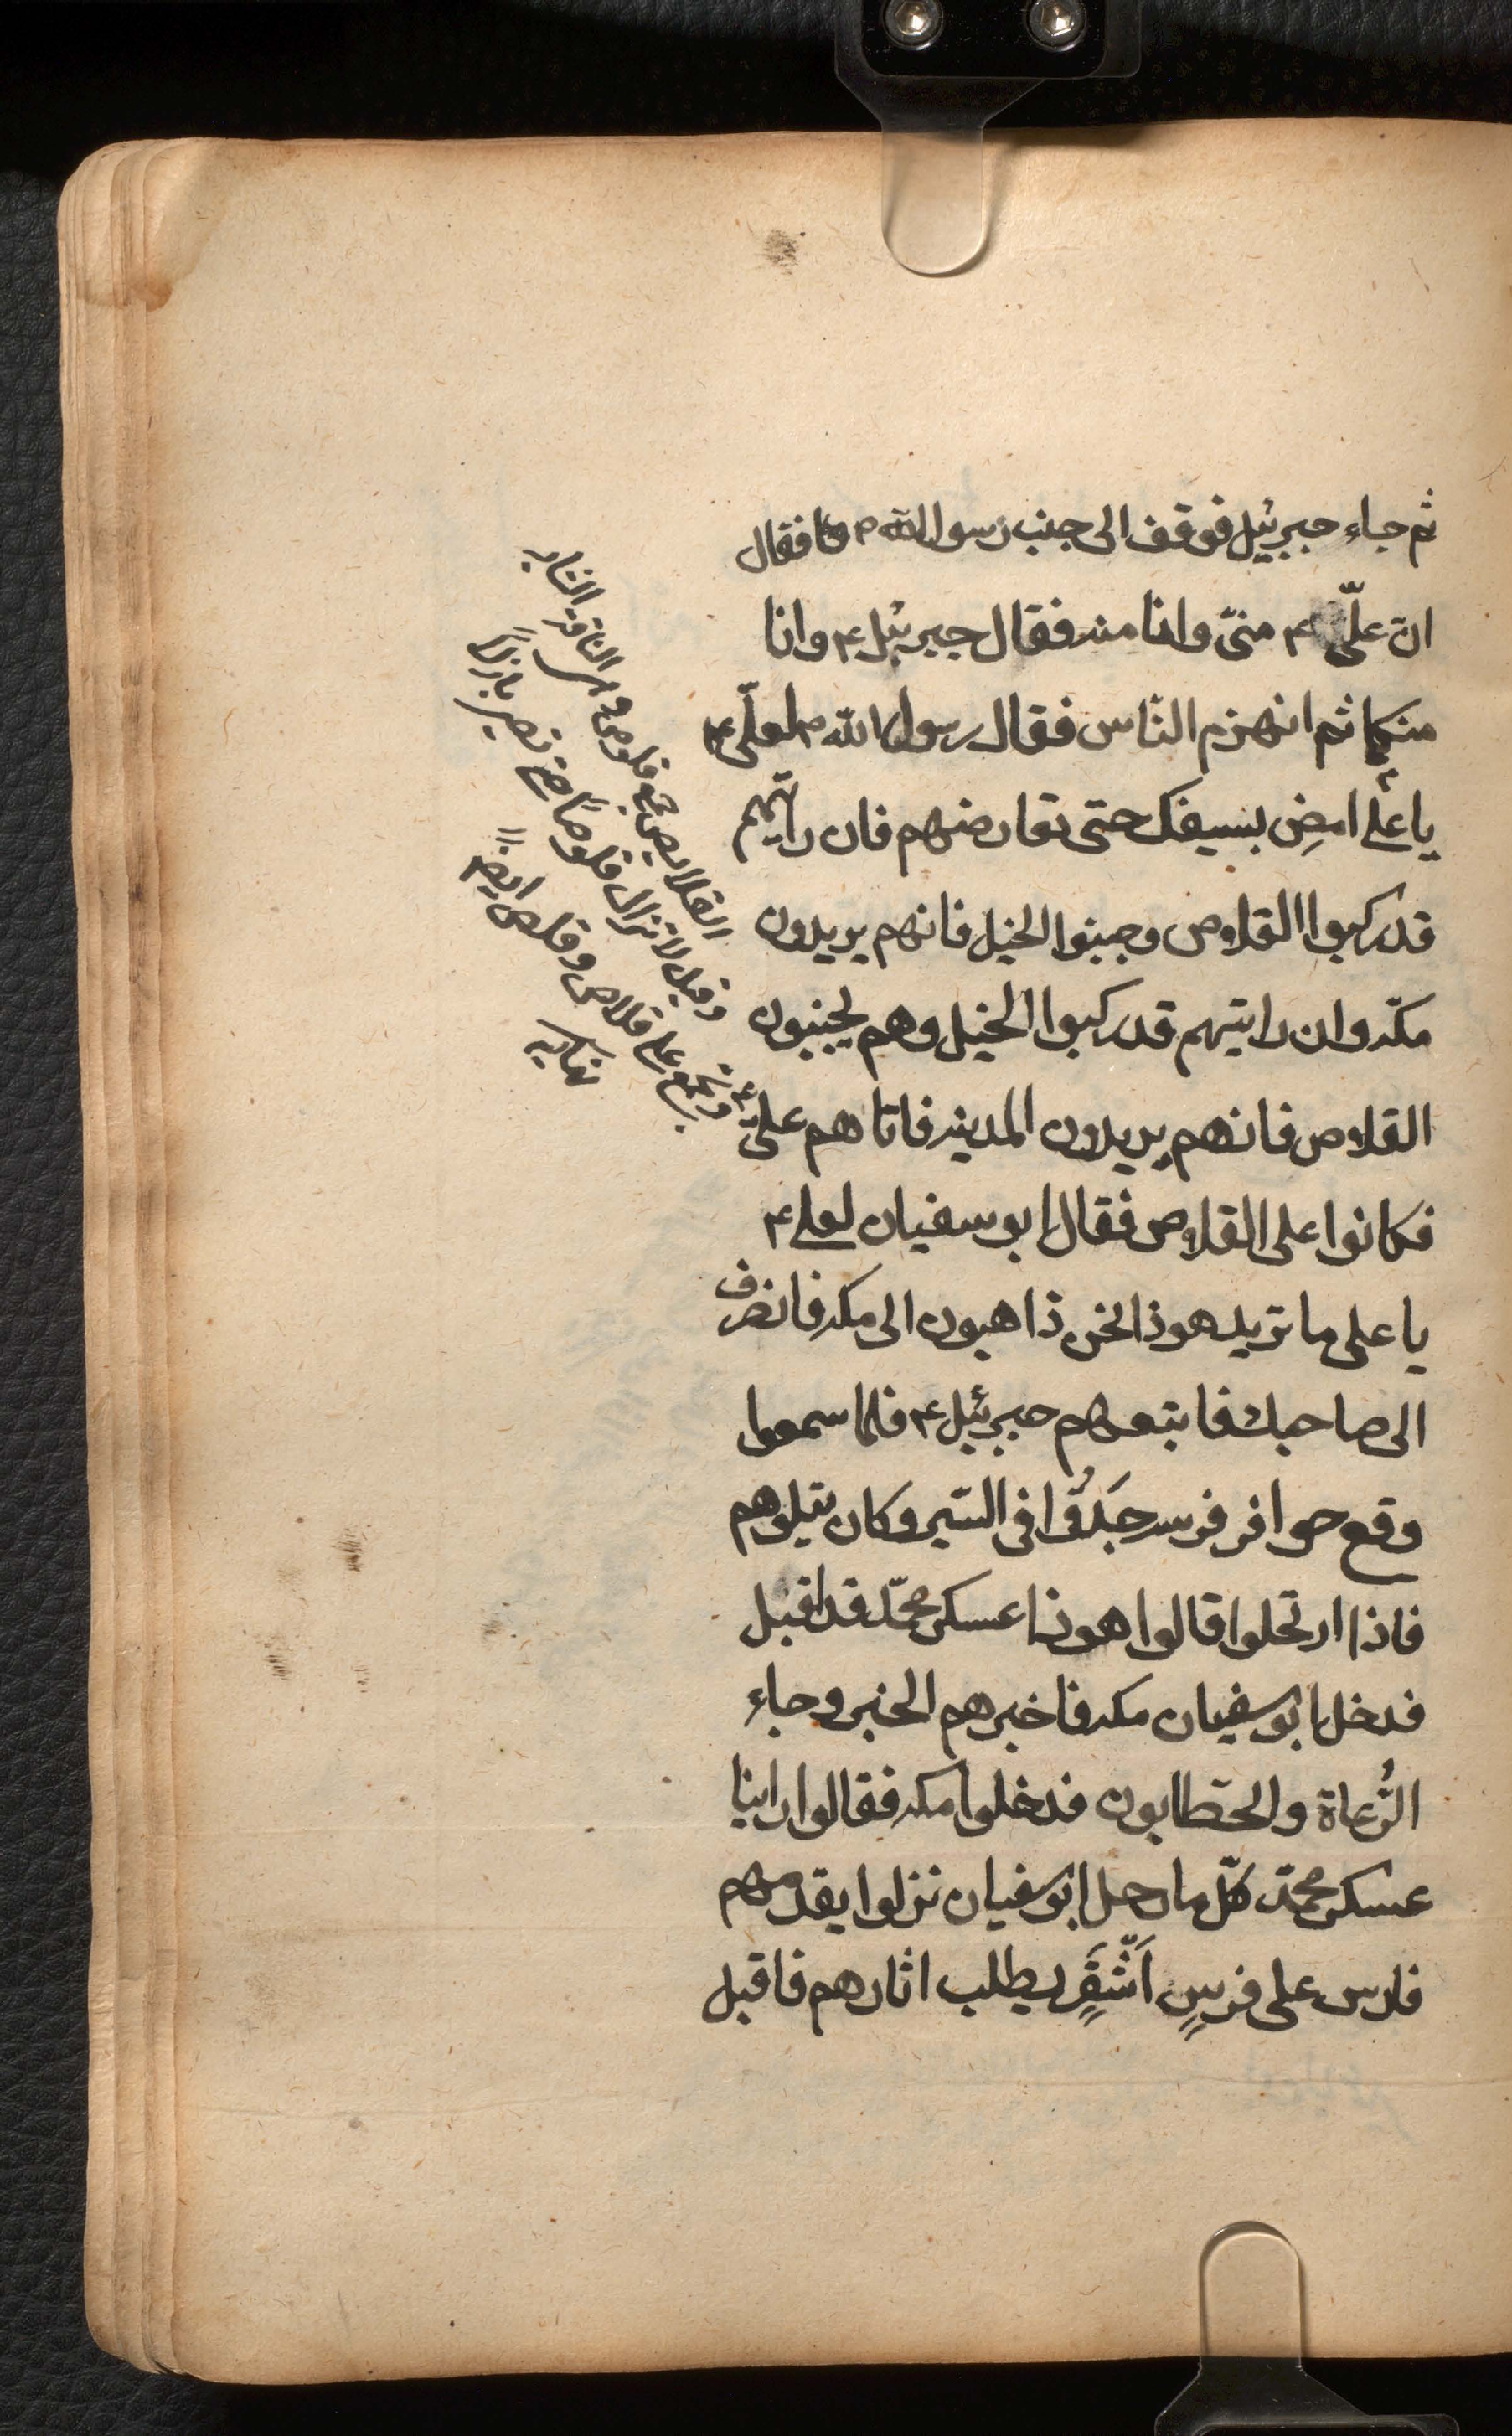 ثم جاء جبرئيل فوقف الى جنب رسول الله ص فقال
ان عليّ ع منىّ وانا منه فقال جبرئيل ع وانا
منكما ثم انهزم النّاس فقال رسول الله ص لعلّى ع
يا علي امضِ بسيفك حتى تعارضهم فان رايتهم
قد ركبوا القلاص وجنبوا الخيل فانهم يريدون
مكة وان رايتهم قد ركبوا الخيل وهم يجنبون
القلاص فانهم يريدون المدينة فاتاهم على ع
فكانوا على القلاص فقال ابو سفيان لعلي ع
يا على ما تريد هوذا نحن ذاهبون الى مكة فانصرف
الى صاحبك فاتبعهم جبرئيل ع فلما سمعوا
وقع حوافر فرسه جَدُّوا فى السّير وكان يتلوهم
فاذا ارتحلوا قالوا هوذا عسكر محمّد قد اقبل
فدخل ابو سفيان مكة فاخبرهم الخبر وجاء
الرُّعاة والحطّابون فدخلوا مكة فقالوا راينا
عسكر محمّد كلّما رحل ابو سفيان نزلوا يقدمهم
فارس على فرسٍ اَشْقَرٍ يطلب اثارهم فاقبل
القلايص جمع قلوص وهى الناقة الشابه
وقيل لا تزال قلوصاً حتى تصير بازلاً
وتجمع على قلاص وقلص ايضاً
نهايه